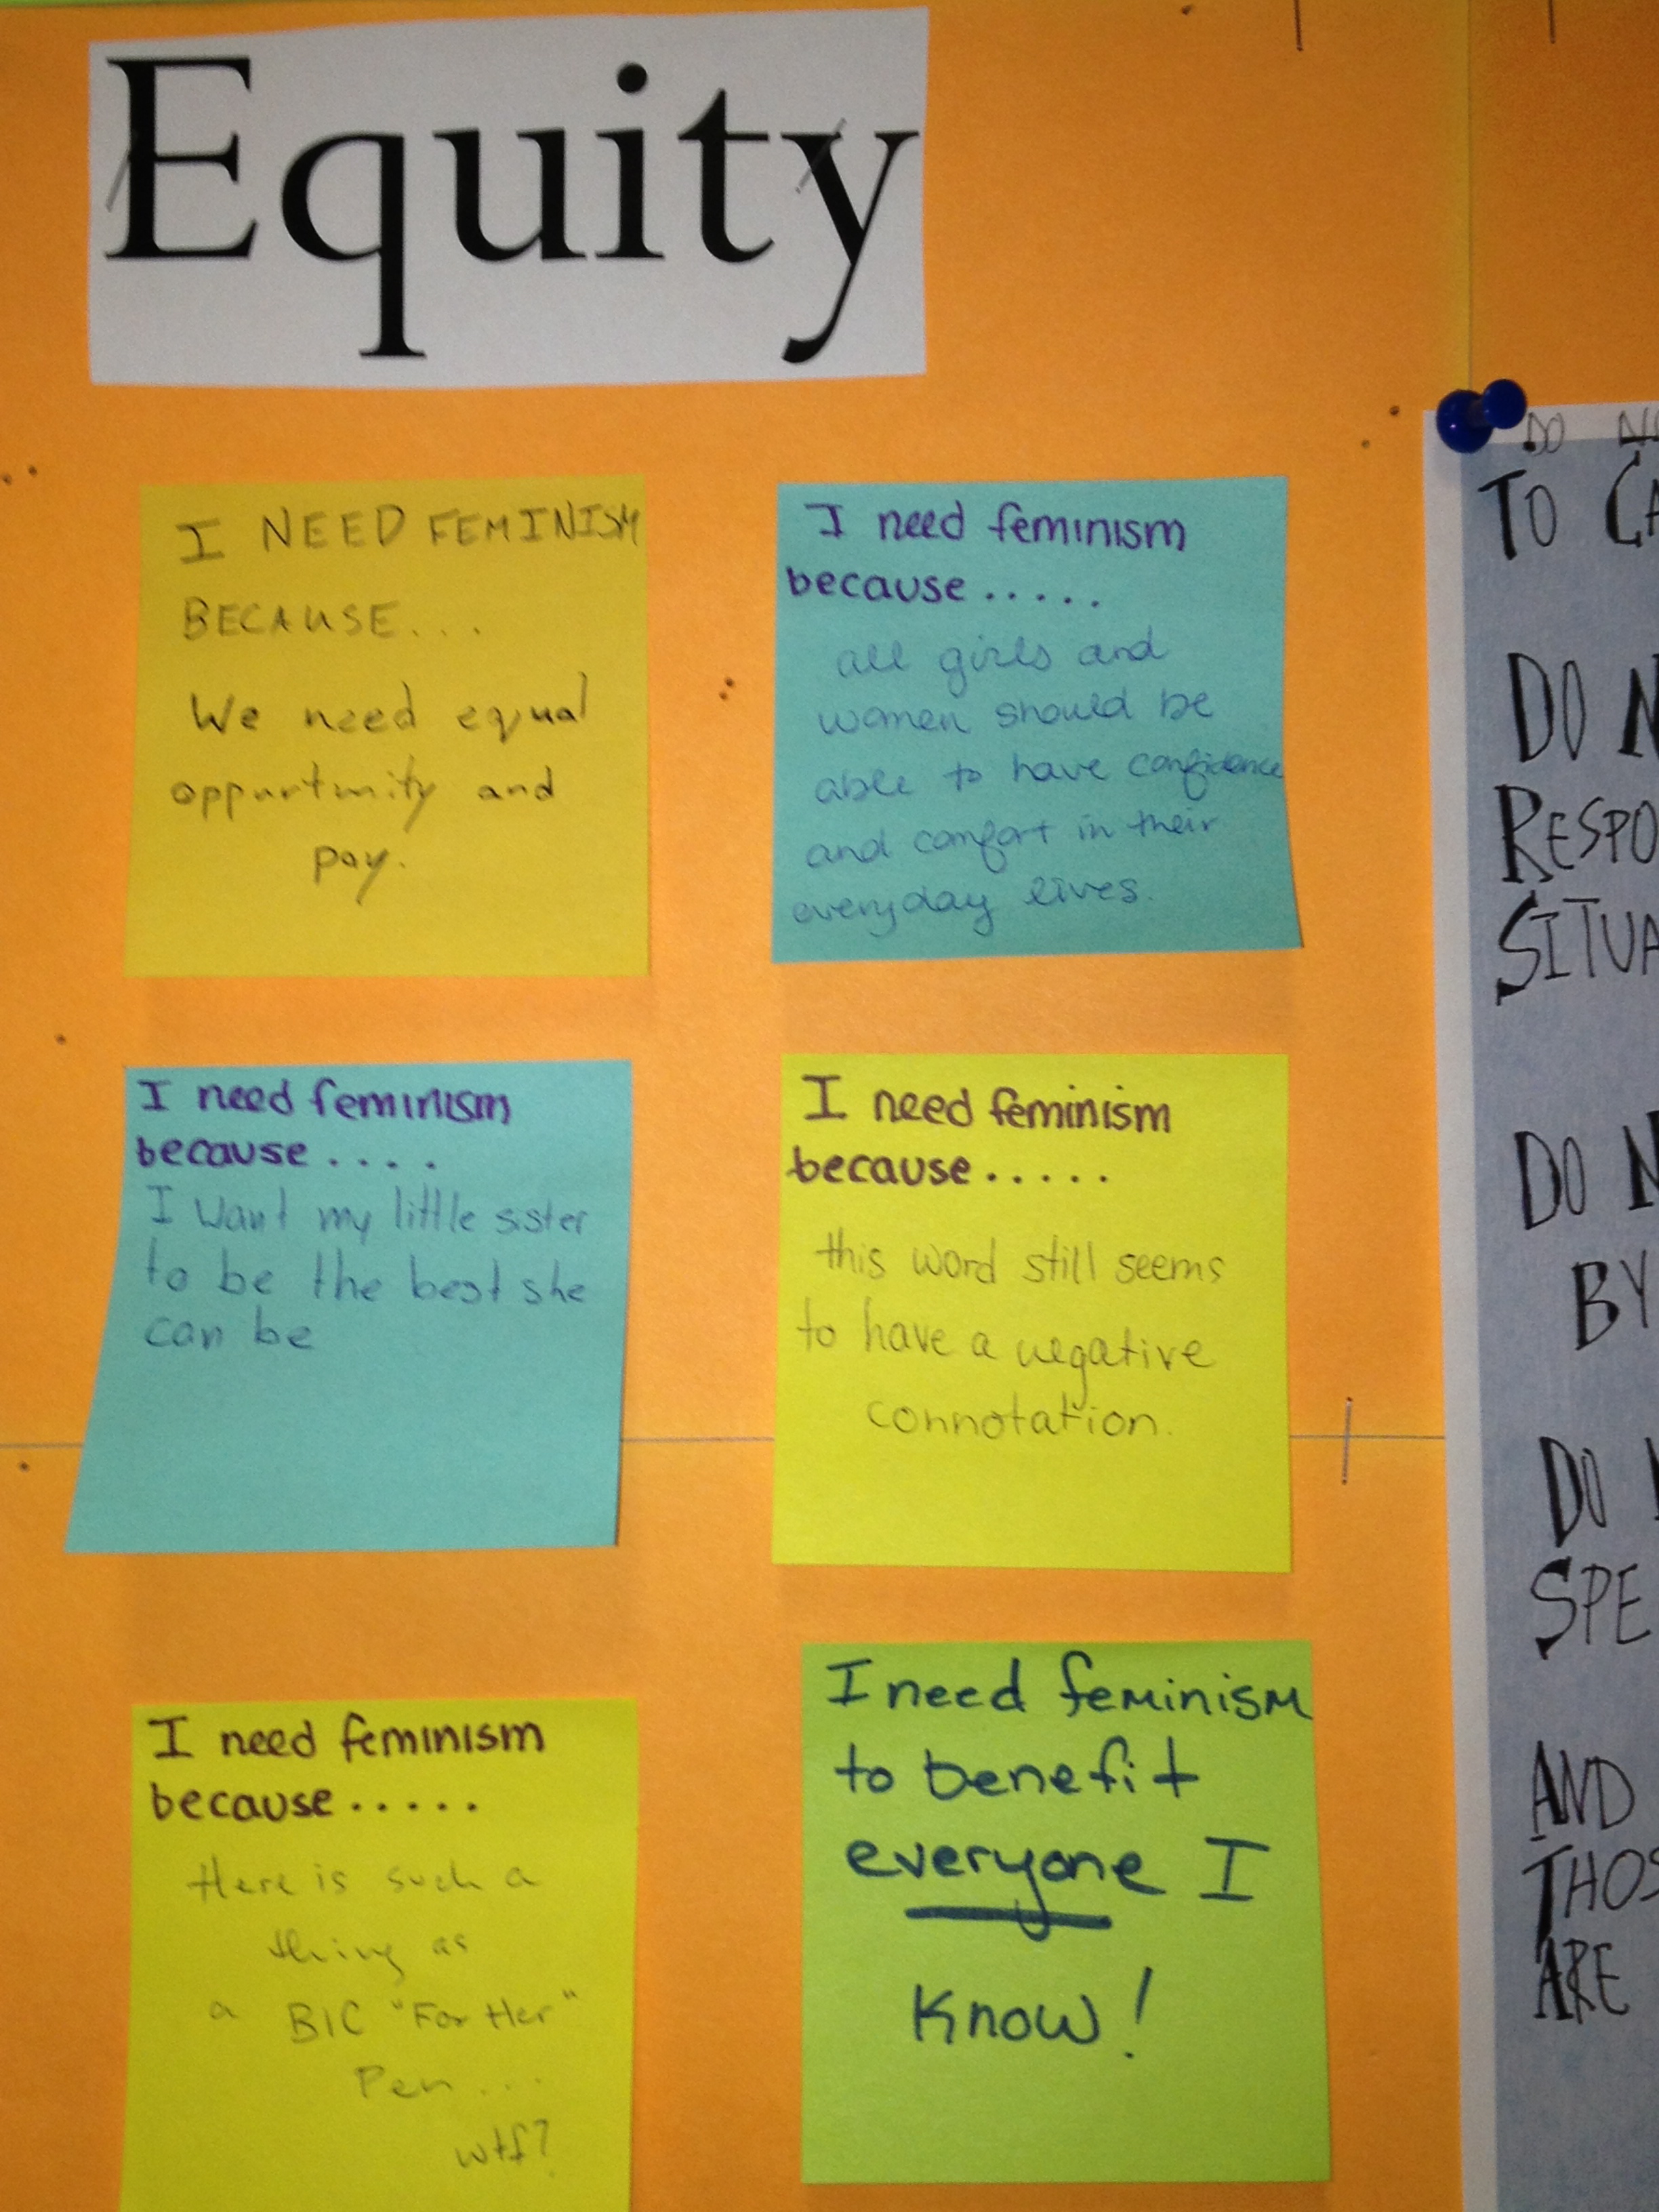 Equity
I NEED FEMINISM
BECAUSE...
We need equal
oppurtunity and
pay.
I need feminism
because.....
all girls and
women should be
able to have confidence
and comfort in their
everyday lives.
I need feminism
because....
I want my little sister
to be the best she
can be
I need feminism
because.....
this word still seems
to have a negative
connotation.
I need feminism
because.....
there is such a
thing as
a BIC "For Her"
Pen...
wtf?
I need feminism
to benefit
everyone I
know!
DO
TO CA
DO N
RESPO
SITUA
DO N
BY
DO
SPE
AND
THOS
ARE